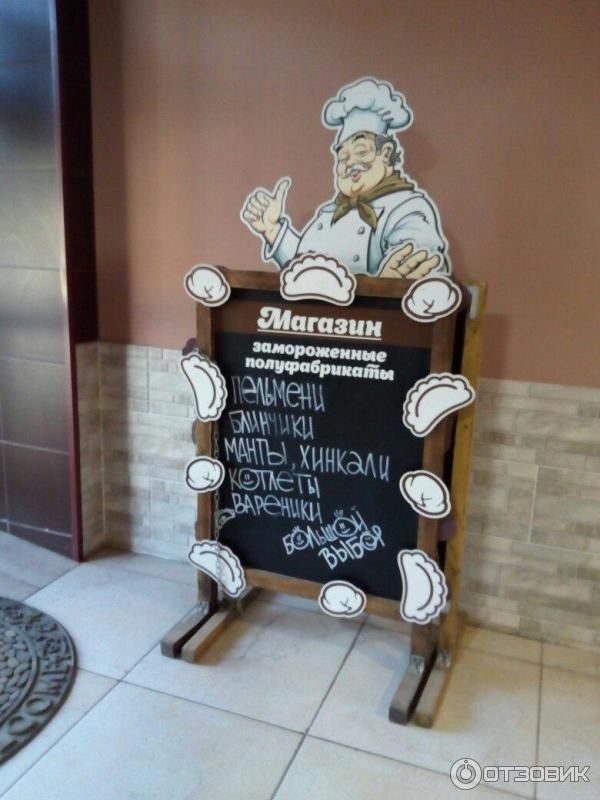 Магазин
замороженные
полуфабрикаты
ПЕЛЬМЕНИ
БЛИНЧИКИ
МАНТЫ, ХИНКАЛИ
КОТЛЕТЫ
ВАРЕНИКИ
БОЛЬШОЙ
ВЫБОР
ОТЗОВИК